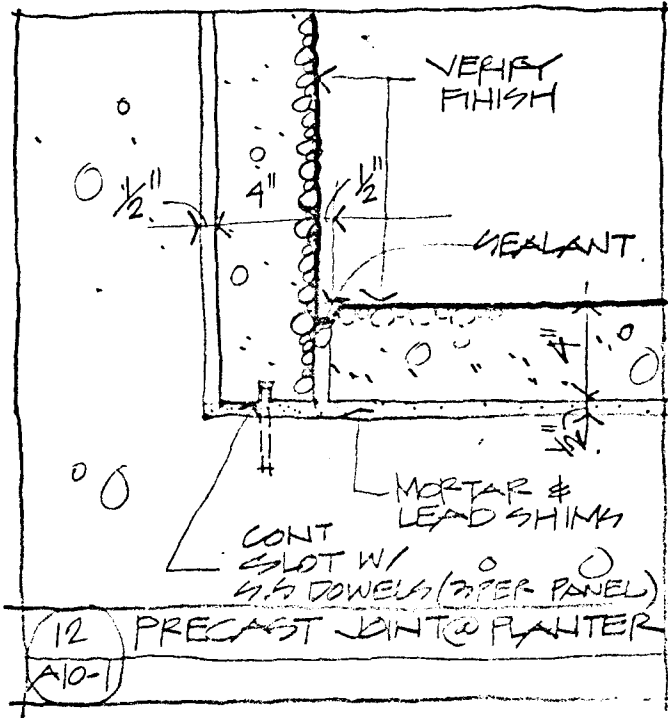 VERIFY
FINISH
1/2"
4"
1/2"
SEALANT.
4"
1/2"
MORTAR &
LEAD SHIMS
CONT
SLOT W/
S.S DOWELS (3 PER PANEL)
12 PRECAST JOINT @ PLANTER
A10-1